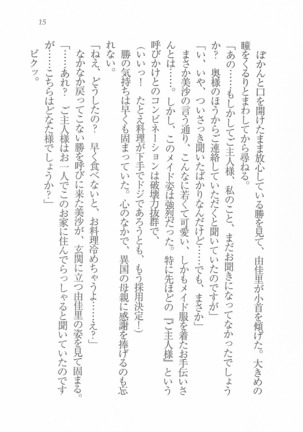 15
ぽかんと口を開けたまま放心している勝を見て、由佳里が小首を傾げた。大きめの
瞳をくるりとまわしてから尋ねる。
「あの……もしかしてご主人様、私のこと、まだお聞きになってなかったでしょう
か？ 奥様のほうからご連絡していただくと聞いていたのですが」
「い、いや、ついさっき聞いたばかりなんだけど……でも、まさか」
まさか美沙の言うとおり、こんなに若くて可愛い、しかもメイド服を着たお手伝いさ
んとは……。しかし、このメイド姿は強烈だった。特に先ほどの『ご主人様』という
呼びかけとのコンビネーションは破壊力抜群で、
（いいっ！ たとえ料理が下手でドジであろうとも、もう採用決定！）
勝の気持ちは早くも固まっていた。心のなかで、異国の母親に感謝を捧げるのも忘
れない。
「ねえ、どうしたの？ 早く食べないと、お料理冷めちゃうよ……え？」
なかなか戻ってこない勝を呼びに来た美沙が、玄関に立つ由佳里の姿を見て固まる。
「……あれ？ ご主人様はお一人でこのお家に住んでらっしゃると聞いていたのです
が……こちらはどなた様でしょうか？」
ピクッ。